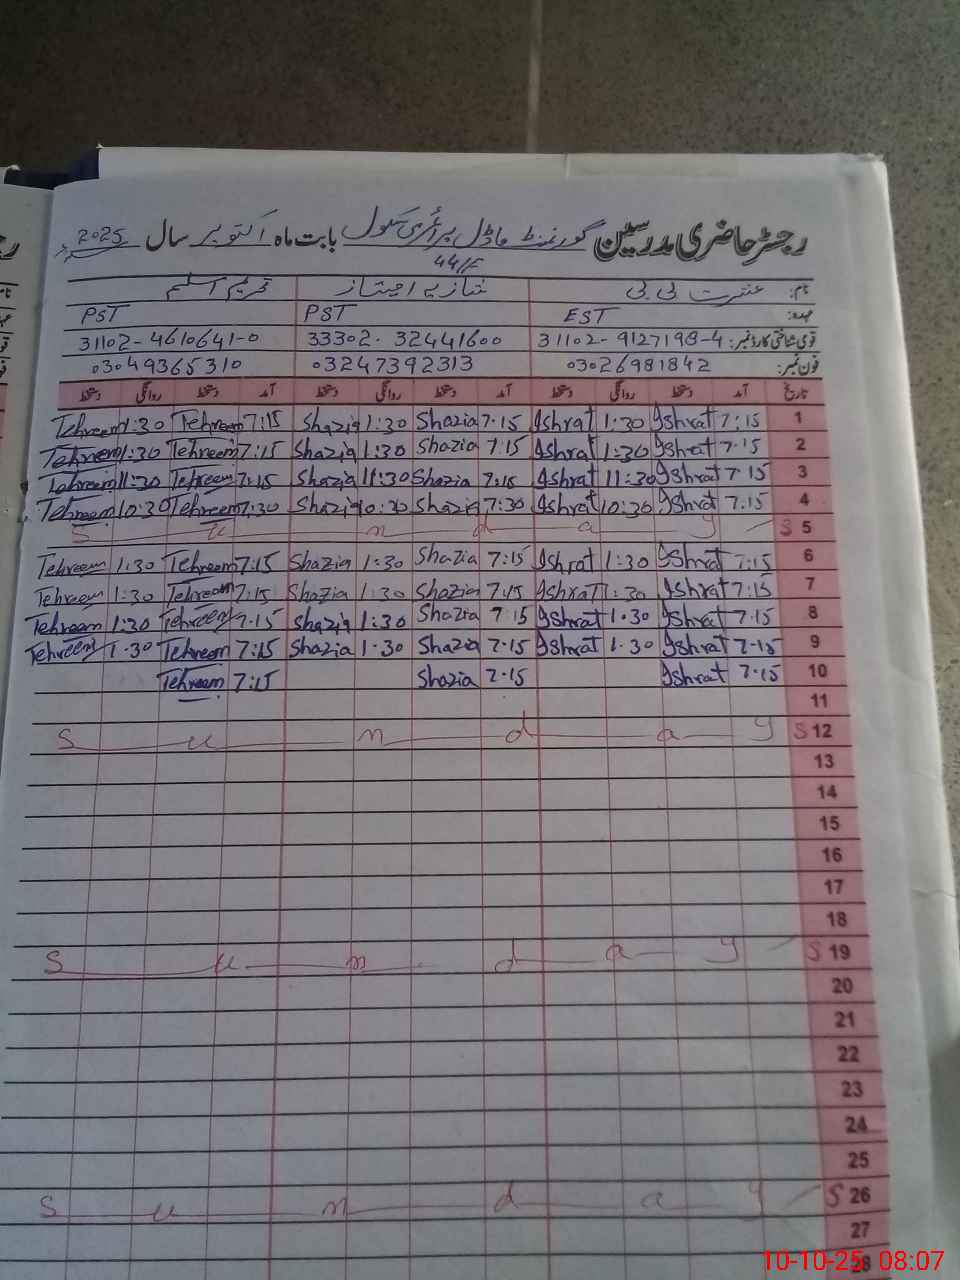 رجسٹر حاضری مدرسین گورنمنٹ ماڈل پرائمری سکول بابت ماہ اکتوبر سال 2025
44/F
نام: عشرت بی بی شازیہ امتیاز تحریم اسلم
عہدہ: EST PST PST
قومی شناختی کارڈ نمبر: 31102-9127198-4 33302-32441600 31102-4610641-0
فون نمبر: 03026981842 03247392313 03049365310
تاریخ آمد دستخط روانگی دستخط آمد دستخط روانگی دستخط آمد دستخط روانگی دستخط
Tehreem 1:30 Tehreem 7:15 Shazia 1:30 Shazia 7.15 Ishrat 1:30 Ishrat 7:15 1
Tehreem 1:30 Tehreem 7:15 Shazia 1:30 Shazia 7.15 Ishrat 1:30 Ishrat 7.15 2
Tehreem 11:30 Tehreem 7:15 Shazia 11:30 Shazia 7:15 Ishrat 11:30 Ishrat 7.15 3
Tehreem 10:30 Tehreem 7:30 Shazia 10:30 Shazia 7:30 Ishrat 10:30 Ishrat 7.15 4
S u n d a y S 5
Tehreem 1:30 Tehreem 7:15 Shazia 1:30 Shazia 7:15 Ishrat 1:30 Ishrat 7:15 6
Tehreem 1:30 Tehreem 7:15 Shazia 1:30 Shazia 7:15 Ishrat 1:30 Ishrat 7:15 7
Tehreem 1:30 Tehreem 7.15 Shazia 1:30 Shazia 7:15 Ishrat 1.30 Ishrat 7.15 8
Tehreem 1.30 Tehreem 7:15 Shazia 1.30 Shazia 7.15 Ishrat 1.30 Ishrat 7.15 9
Tehreem 7:15 Shazia 7.15 Ishrat 7.15 10
11
S u n d a y S 12
13
14
15
16
17
18
S u n d a y S 19
20
21
22
23
24
25
S u n d a y S 26
27
28
10-10-25 08:07